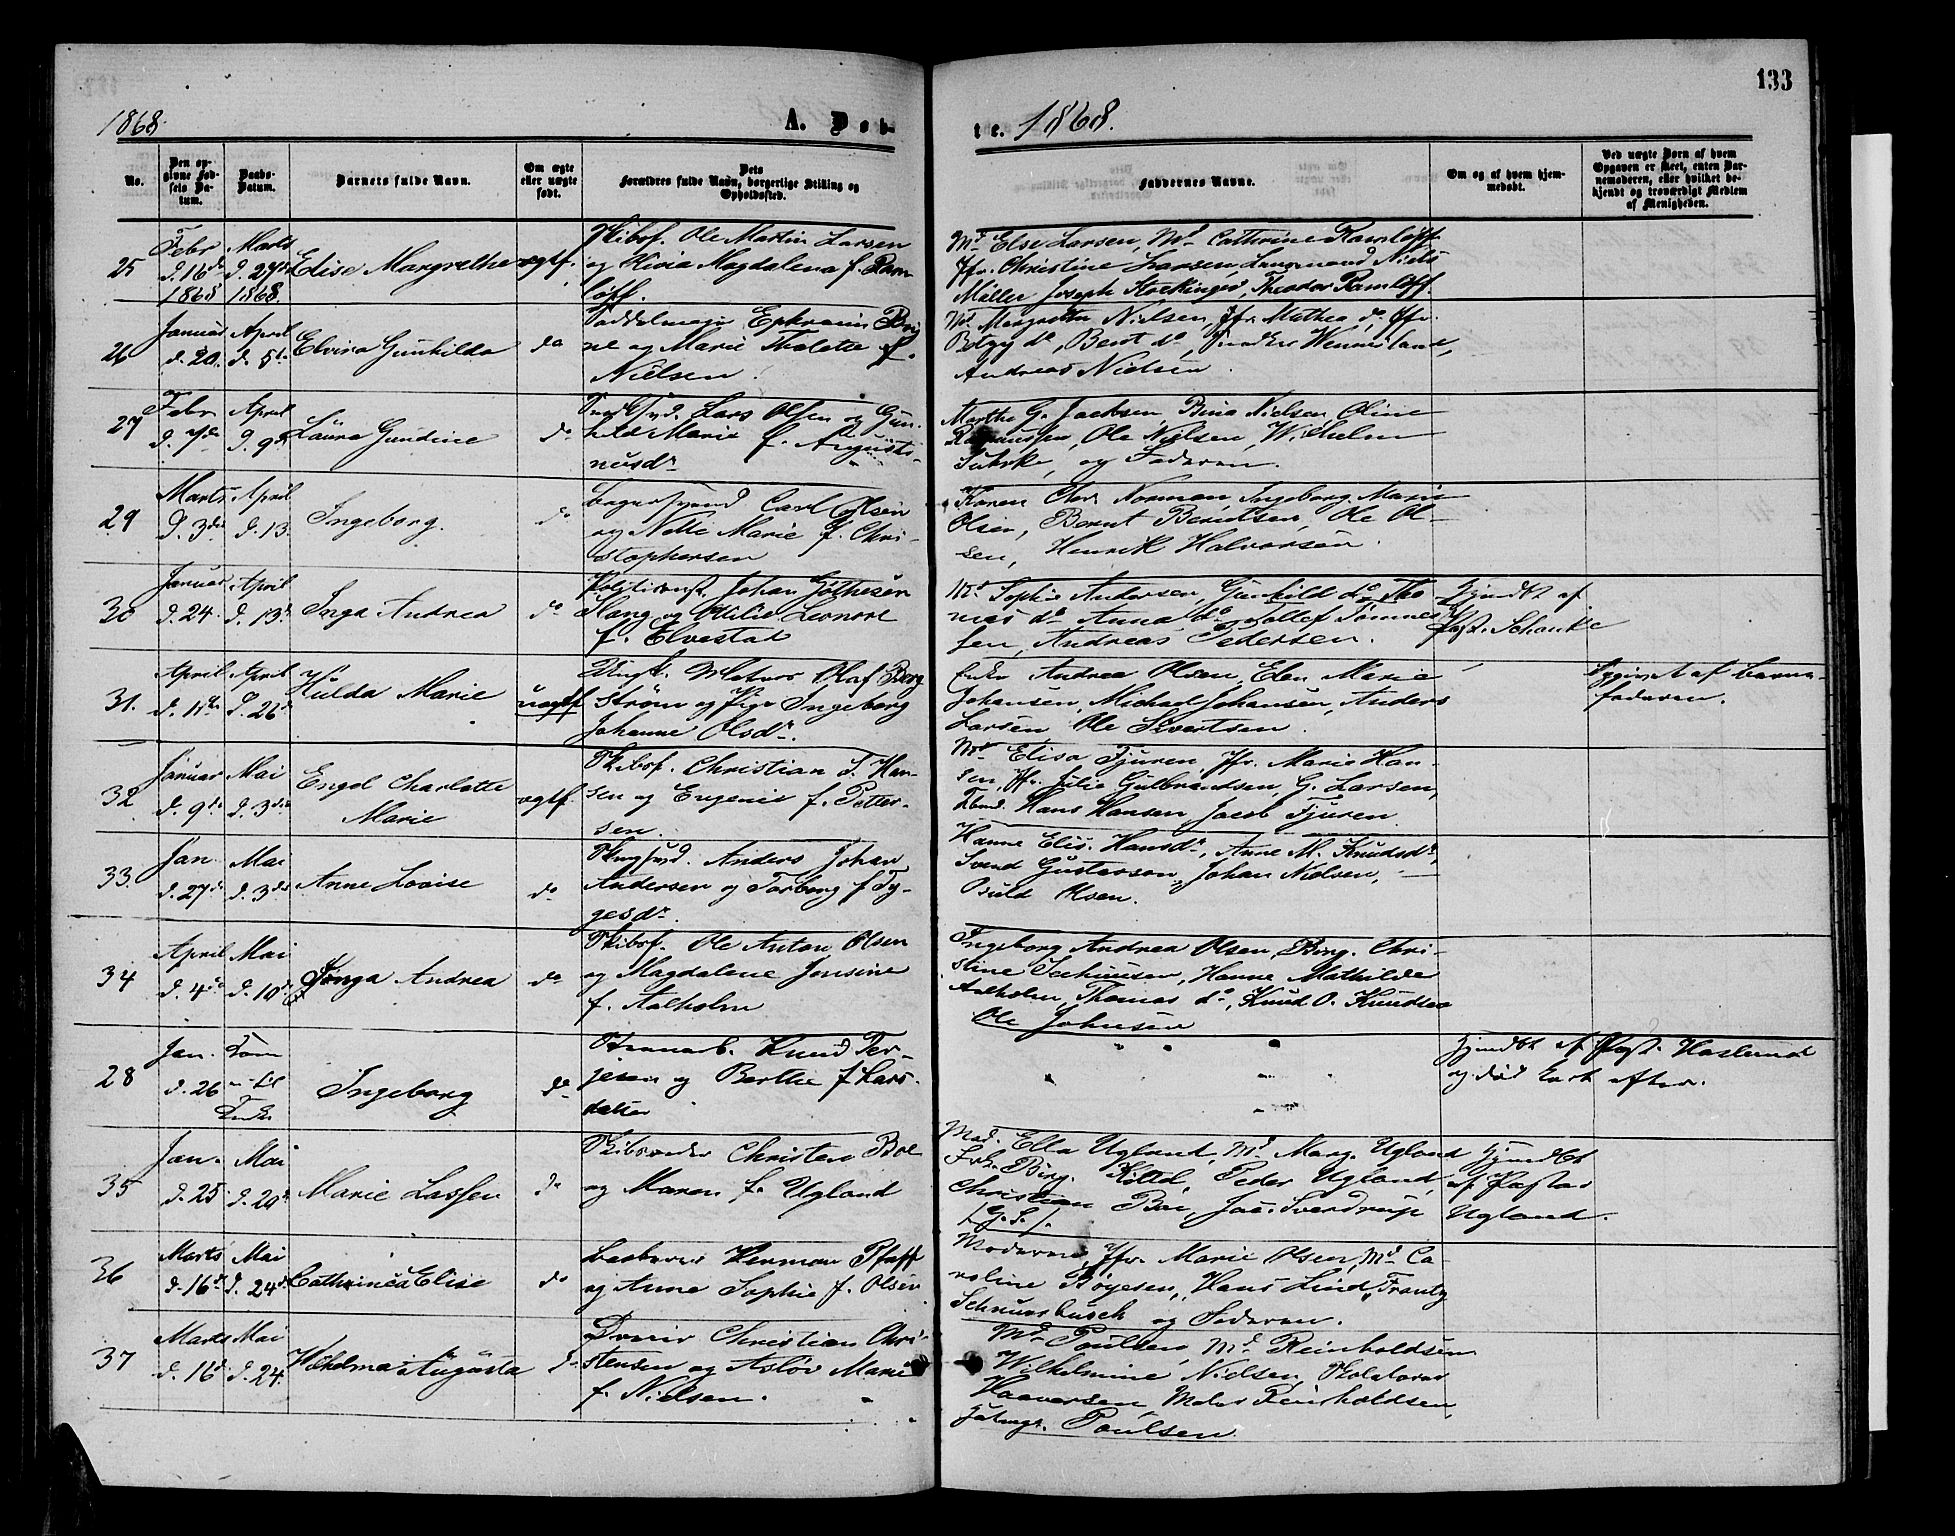 133
1868.
A. Døb-
te. 1868.
No.
Den op-
givne Fød-
sels Da-
tum.
Daabs-
Datum.
Barnets fulde Navn.
Om ægte
eller uægte
født.
Dets
Forældres fulde Navn, borgerlige Stilling og
Opholdssted.
Faddernes Navne.
Om og af hvem hjem-
medøbt.
Ved uægte Børn af hvem
Opgaven er skeet, enten Bar-
nemoderen, eller hvilket be-
kjendt og troværdigt Medlem
af Menigheden.
25
Febr
d. 16de
1868
Marts
d. 27de
1868.
Elise Margrethe
ægtf.
Skibsf. Ole Martin Larsen
og Magdalena f. Ram-
løff.
Md Else Larsen, Md Cathrine Ramløff
Jfr. Christine Larsen, Niels
Møller Joseph Theodor Ramløff.
26
Januar
d. 20.
April
d. 5te
Elvira Gunhilda
do
Saddelmager Ephraim
og Marie Thalette f.
Nielsen.
Md Margrethe Nielsen, Jfr. Mathea do, Jfr.
do, Bent do, Wennesland,
Andreas Nielsen.
27
Febr
d. 7de
April
d. 9de
Laura Gundine
do
Lars Olsen og Gun-
hild Marie f. Augusti-
nusdr
Marthe G. Jacobsen, Bina Nielsen, Oline
Rasmussen, Ole Nielsen, Wilhelm
og Faderen.
29
Marts
d. 3die
April
d. 13
Ingeborg.
do
Bagersvend Carl Olsen
og Nelle Marie f. Chri-
stophersen
Karen Chr. Norman, Ingeborg Marie
Olsen, Bernt Berntsen, Ole Ol-
sen, Henrik Halvorsen.
30
Januar
d. 24.
April
d. 13de
Inga Andrea
do
Johan
Hang og Julie Leonore
f. Elvestad
Md Sophie Andersen, Gunhild do, Tho-
mas do Anna do Tollef Tønnes-
sen, Andreas Pedersen.
Hjemdbt af
Past. Schanke
31.
April
d. 11te
April
d. 26de
Hulda Marie
uægtf
Ungk. Matros Olaf Berg
Strøm og Pige Ingeborg
Johanne Olsdr.
Enke Andrea Olsen, Elen Marie
Johansen, Michael Johansen, Anders
Larsen, Ole Sivertsen.
Opgivet af Barne-
faderen.
32
Januar
d. 9de
Mai
d. 3die
Engel Charlotte
Marie
ægtf.
Skibsf. Christian S. Han-
sen og Eugenie f. Petter-
sen.
Md Elisa Tjuren, Jfr. Marie Han-
sen, Jfr. Julie Gulbrandsen, G. Larsen,
Hans Hansen, Jacob Tjuren.
33.
Jan.
d. 27de
Mai
d. 3die
Anne Lovise
do
Anders Johan
Andersen og Torborg f. Ty-
gesdr.
Hanne Elis. Hansdr, Anne M. Knudsdr,
Svend Gustavson, Johan Nielsen,
Osuld Olsen.
34
April
d. 4de
Mai
d. 10de
Inga Andrea
do
Skibsf. Ole Anton Olsen
og Magdalene Jensine
f. Aalholm
Ingeborg Andrea Olsen, Berg. Chri-
stine Seehuusen, Hanne Mathilde
Aalholm, Thomas do, Knud O. Knudsen
Ole Johnsen
28
Jan.
d. 26
Ingeborg
do
Knud Ter-
jesen og Berthe f. Lars-
datter
Hjemdbt af Past. Haslund
og død kort efter.
35
Jan.
d. 25
Mai
d. 20de
Marie Lassen
do
Skibsreder Christen Boe
og Maren f. Ugland
Mad. Ella Ugland, Md Marg. Ugland
Frk. Berg. Kittel, Peder Ugland,
Christian Boe, Jac. Sverdrup
Hjemdbt
af Pastor
Ugland.
36
Marts
d. 16de
Mai
d. 24de
Cathrinea Elise
do
Herman Pfaff
og Anne Sophie f. Olsen
Moderen, Jfr. Marie Olsen, Md Ca-
roline Bøyesen, Hans Lind, Frantz
Schnurrbusch og Faderen.
37
Marts
d. 16de
Mai
d. 24.
Wilhelma Augusta
do
Christian Chri-
stensen og Asløv Marie
f. Nielsen.
Md Poulsen, Md Reinholdsen
Wilhelmine Nielsen, Skolelærer
Haaversen, Maler Reinholdsen,
Poulsen.